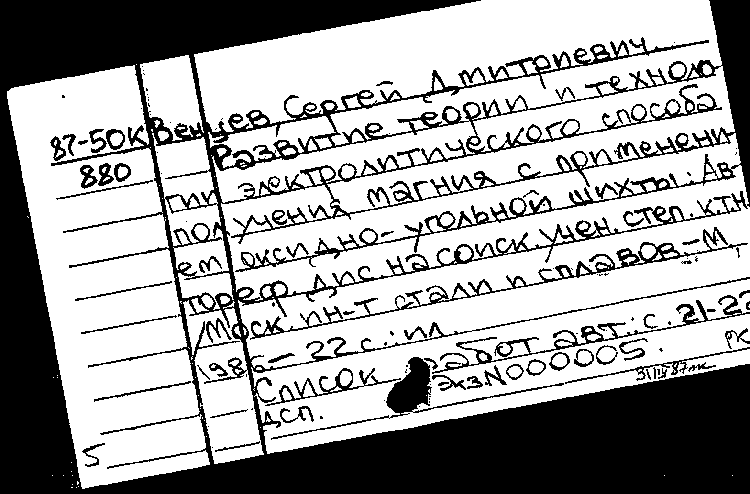 87-50К Венцев, Сергей Дмитриевич.
880 Развитие теории и технол
гии электролитического способа
получения магния с применени-
ем оксидно-угольной шихты: Ав-
тореф. дис. на соиск. учен. степ. к.т.н.
/Моск. ин-т стали и сплавов.-М.,
1986.- 22 с.: ил.
Список работ авт.: с. 21-22
дсп. Экз N000005. РК
31/III 87
5